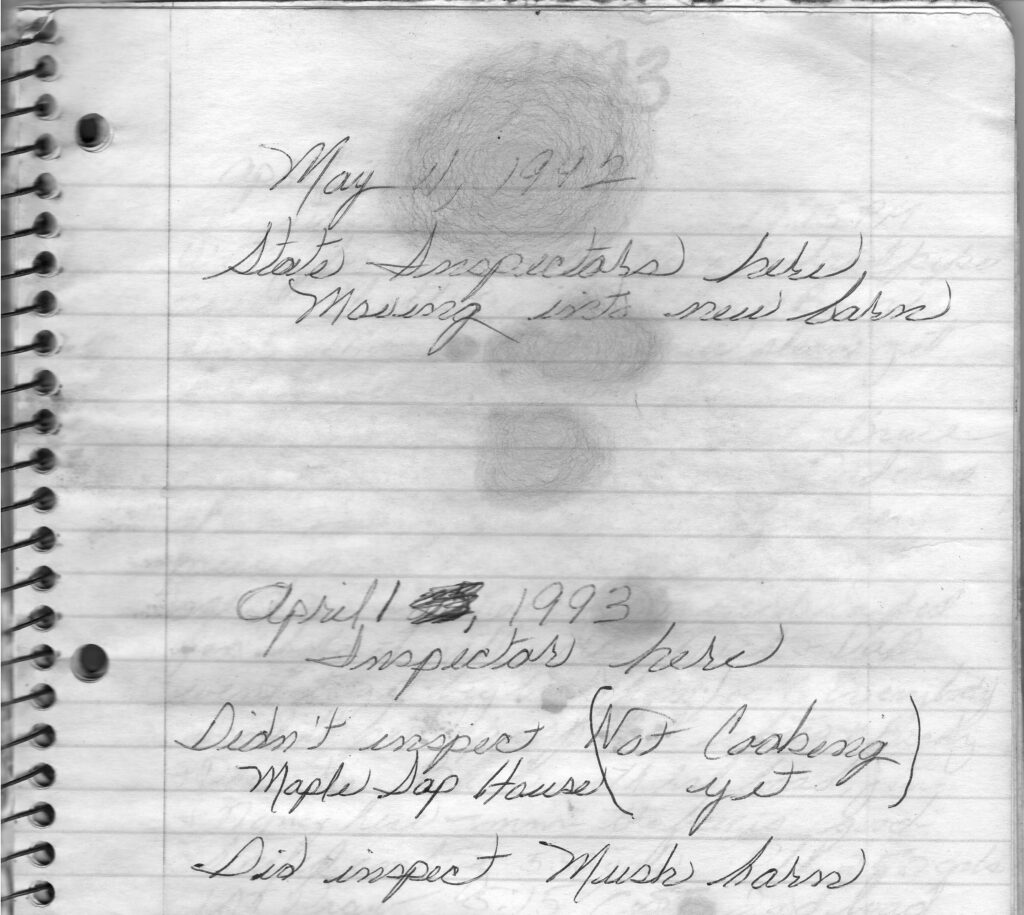 May 11, 1992
State Inspectors here
Moving into new barn
April 1, 1993
Inspector here
Didn't inspect (Not Cooking
Maple Sap House yet)
Did inspect Mush barn